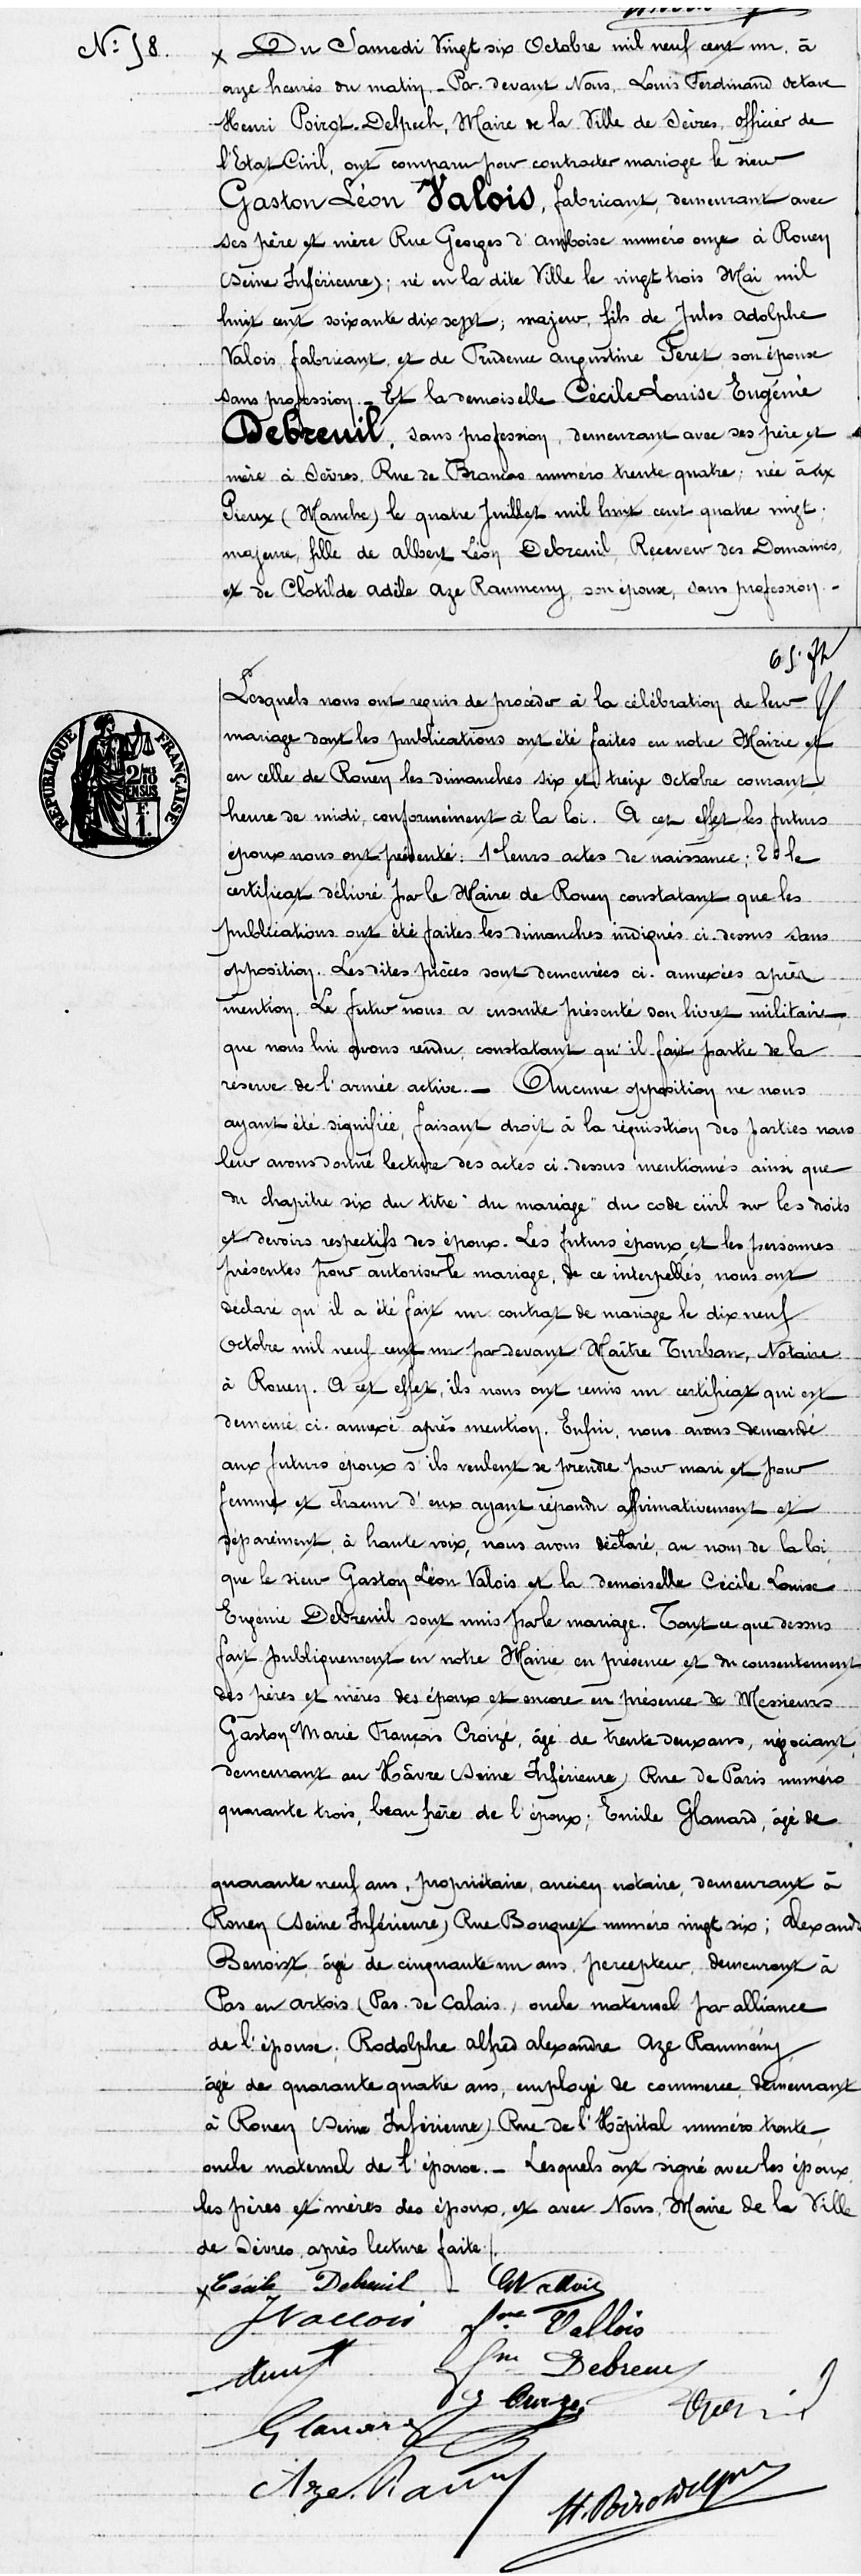 N: 58. Du Samedi Vingt six Octobre mil neuf cent un, à
onze heures du matin. Par devant Nous, Louis Ferdinand Octave
Henri Poirot-Delpech, Maire de la Ville de Sèvres, officier de
l'Etat Civil, ont comparu pour contracter mariage le sieur
Gaston Léon Valois, fabricant, demeurant avec
ses père et mère Rue Georges d'Amboise numéro onze à Rouen
(Seine Inférieure); né en la dite Ville le vingt trois Mai mil
huit cent soixante dix sept; majeur, fils de Jules Adolphe
Valois, fabricant et de Prudence Augustine Feret, son épouse
sans profession. - Et la demoiselle Cécile Louise Eugénie
Debreuil, sans profession, demeurant avec ses père et
mère à Sèvres, Rue de Brancas numéro trente quatre; née à aux
Pieux (Manche) le quatre Juillet mil huit cent quatre vingt;
majeure, fille de Albert Léon Debreuil, Receveur des Domaines,
et de Clotilde Adèle Aze Raumeny, son épouse, sans profession. -
65.
Lesquels nous ont requis de procéder à la célébration de leur
mariage dont les publications ont été faites en notre Mairie et
en celle de Rouen les dimanches six et treize octobre courant
heure de midi, conformément à la loi. A cet effet les futurs
époux nous ont présenté: 1° leurs actes de naissance; 2° le
certificat délivré par le Maire de Rouen constatant que les
publications ont été faites les dimanches indiqués ci-dessus sans
opposition. Les dites pièces sont demeurées ci-annexées après
mention. Le futur nous a ensuite présenté son livret militaire
que nous lui avons rendu, constatant qu'il fait partie de la
réserve de l'armée active. - Aucune opposition ne nous
ayant été signifiée, faisant droit à la réquisition des parties nous
leur avons donné lecture des actes ci-dessus mentionnés ainsi que
du chapitre six du titre "du mariage" du code civil sur les droits
et devoirs respectifs des époux. Les futurs époux et les personnes
présentes pour autoriser le mariage, de ce interpellés, nous ont
déclaré qu'il a été fait un contrat de mariage le dix neuf
Octobre mil neuf cent un par devant Maître Turban, Notaire
à Rouen. A cet effet, ils nous ont remis un certificat qui est
demeuré ci-annexé après mention. Enfin, nous avons demandé
aux futurs époux s'ils veulent se prendre pour mari et pour
femme et chacun d'eux ayant répondu affirmativement et
séparément, à haute voix, nous avons déclaré, au nom de la loi
que le sieur Gaston Léon Valois et la demoiselle Cécile Louise
Eugénie Debreuil sont unis par le mariage. Tout ce que dessus
fait publiquement en notre Mairie en présence et du consentement
des pères et mères des époux et encore en présence de Messieurs
Gaston Marie François Croizé, âgé de trente deux ans, négociant,
demeurant au Hâvre (Seine Inférieure) Rue de Paris numéro
quarante trois, beau frère de l'époux; Emile Glanard, âgé de
quarante neuf ans, propriétaire, ancien notaire, demeurant à
Rouen (Seine Inférieure) Rue Bouquet numéro vingt six; Alexandre
Benoist, âgé de cinquante un ans, percepteur, demeurant à
Pas en Artois (Pas-de-Calais), oncle maternel par alliance
de l'épouse; Rodolphe Alfred Alexandre Aze Raumény,
âgé de quarante quatre ans, employé de commerce, demeurant
à Rouen (Seine Inférieure) Rue de l'Hôpital numéro trente,
oncle maternel de l'épouse. - Lesquels ont signé avec les époux,
les pères et mères des époux, et avec Nous, Maire de la Ville
de Sèvres, après lecture faite.
Cécile Debreuil GVallois
JVallois Vallois
Debreuil
Glanard
Aze.
H. Poirot Delpech
RÉPUBLIQUE FRANÇAISE